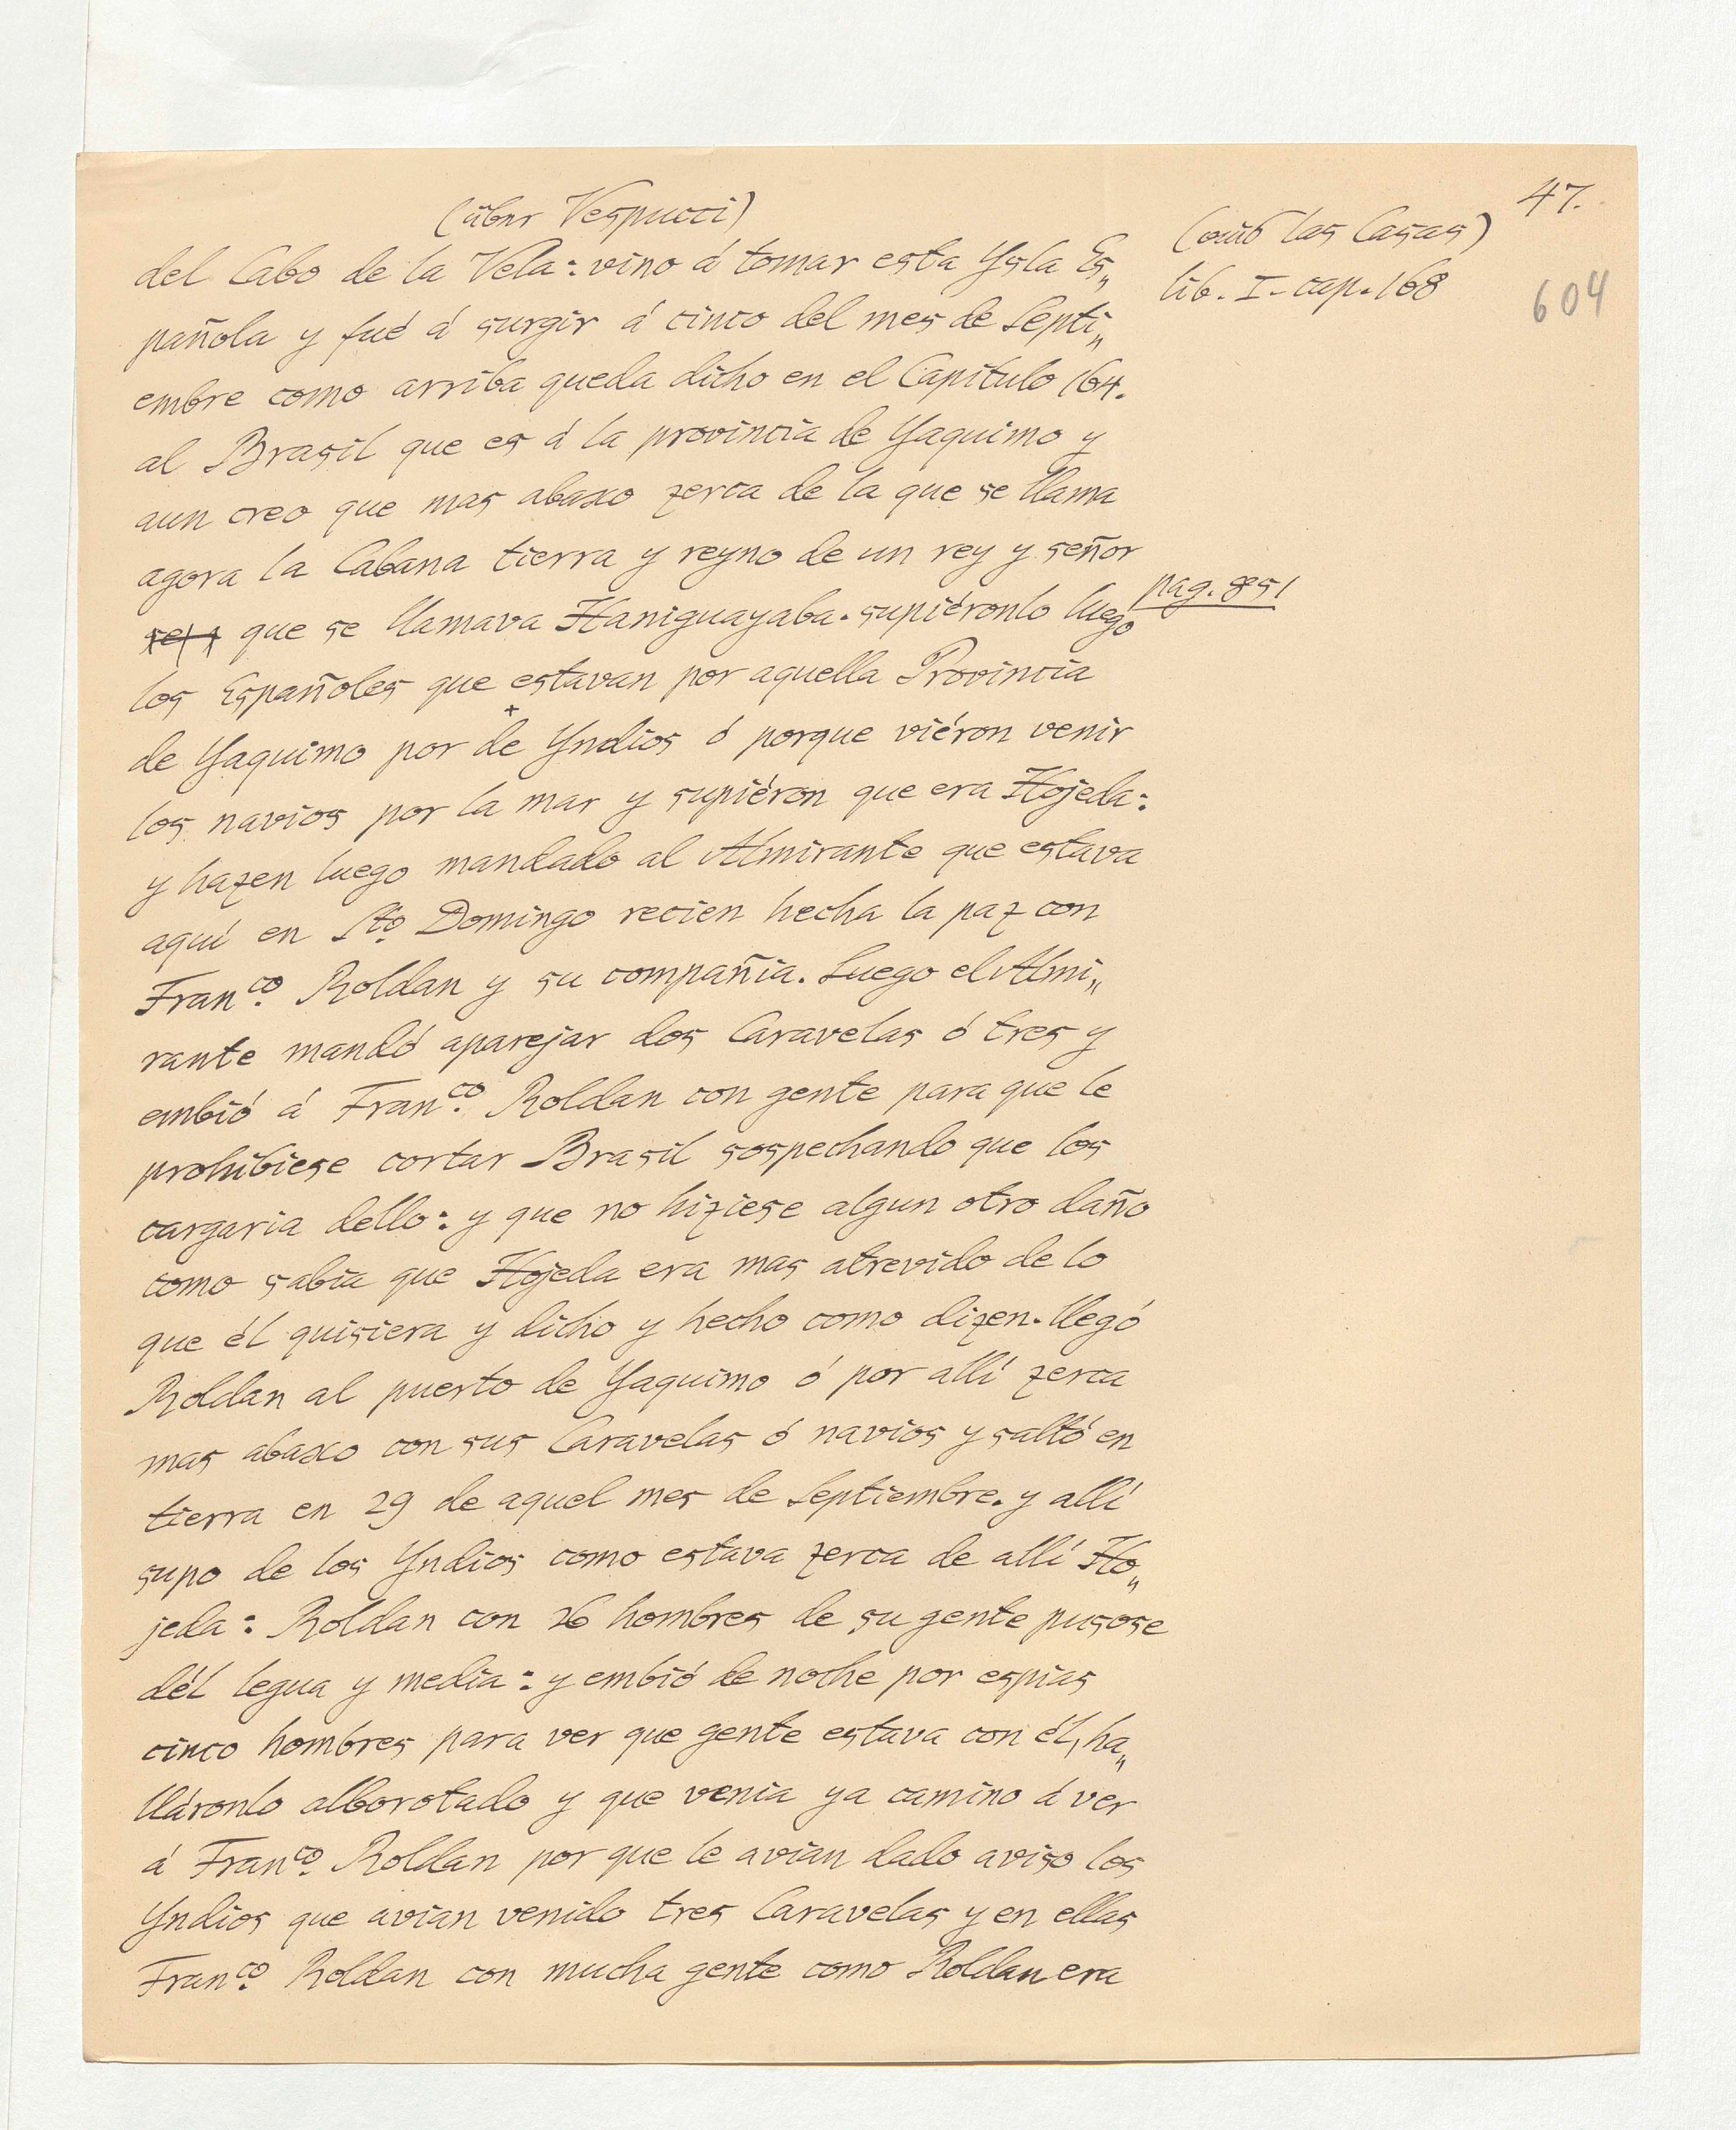 47.
(über Vespucci)
(aus las Casas)
lib. I. cap. 168
604
del Cabo de la Vela: vino á tomar esta Ysla Es„
pañola y fué á surgir á cinco del mes de Septi„
embre como arriba queda dicho en el Capitulo 164.
al Brasil que es á la provincia de Yaquimo y
aun creo que mas abaxo zerca de la que se llama
agora la Cabana tierra y reyno de un rey y señor
que se llamava Haniguayaba. supiéronlo luego
pag. 851
los Españoles que estavan por aquella Provincia
de Yaquimo por de Yndios ó porque viéron venir
los navios por la mar y supiéron que era Hojeda:
y hazen luego mandado al Almirante que estava
aquí en Sto Domingo recien hecha la paz con
Franco. Roldan y su compañia. Luego el Almi„
rante mandó aparejar dos Caravelas ó tres y
embió á Franco. Roldan con gente para que le
prohibiese cortar Brasil sospechando que los
cargaria dello: y que no hiziese algun otro daño
como sabia que Hojeda era mas atrevido de lo
que él quisiera y dicho y hecho como dizen. llegó
Roldan al puerto de Yaquimo ó por allí zerca
mas abaxo con sus Caravelas ó navios y saltó en
tierra en 29 de aquel mes de Septiembre. y allí
supo de los Yndios como estava zerca de allí Ho„
jeda: Roldan con 26 hombres de su gente pusose
dél legua y media: y embió de noche por espias
cinco hombres para ver que gente estava con él, ha„
lláronlo alborotado y que venia ya camino á ver
á Franco. Roldan por que le avian dado aviso los
Yndios que avian venido tres Caravelas y en ellas
Franco. Roldan con mucha gente como Roldan era